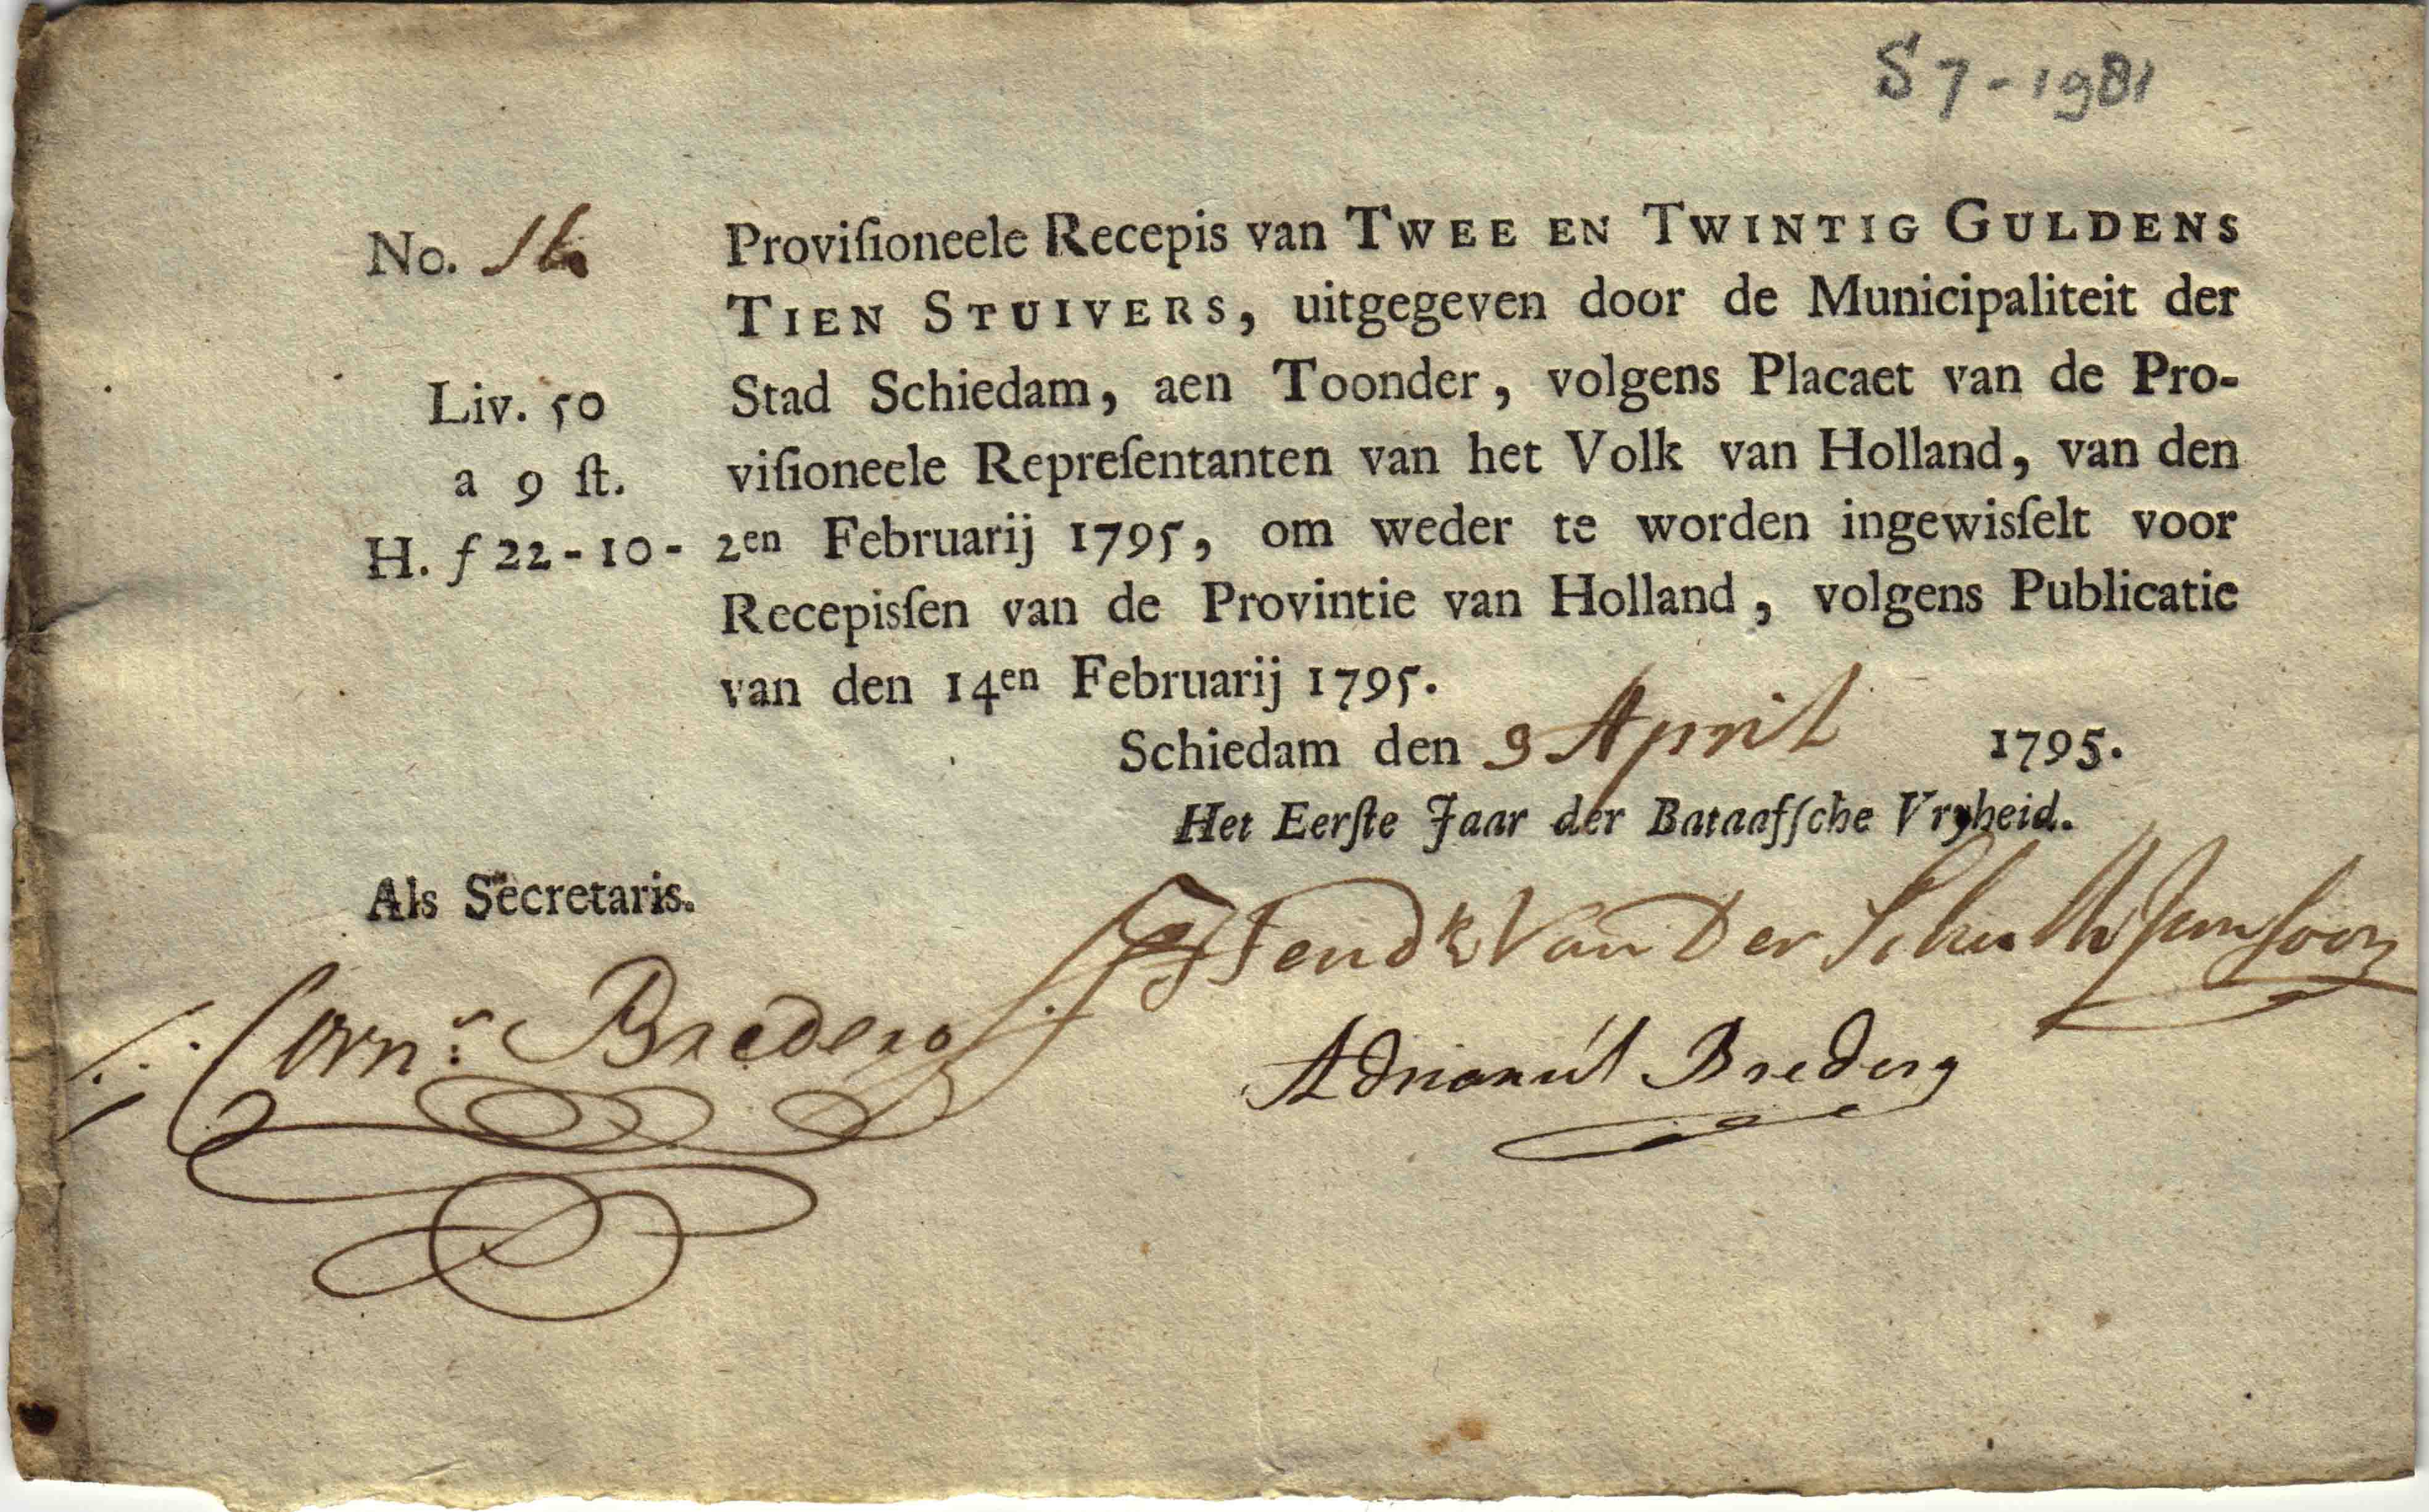 S 7 - 1981
No. 16
Proviſioneele Recepis van TWEE EN TWINTIG GULDENS
TIEN STUIVERS, uitgegeven door de Municipaliteit der
Liv. 50
Stad Schiedam, aen Toonder, volgens Placaet van de Pro-
a 9 ſt.
viſioneele Repreſentanten van het Volk van Holland, van den
H. f 22 - 10 -
2en Februarij 1795, om weder te worden ingewisſelt voor
Recepisſen van de Provintie van Holland, volgens Publicatie
van den 14en Februarij 1795.
Schiedam den 9 April 1795.
Het Eerſte Jaar der Bataafſche Vryheid.
Als Secretaris.
Hendk Van Der
Corns Brederg
Adrianus Brederg